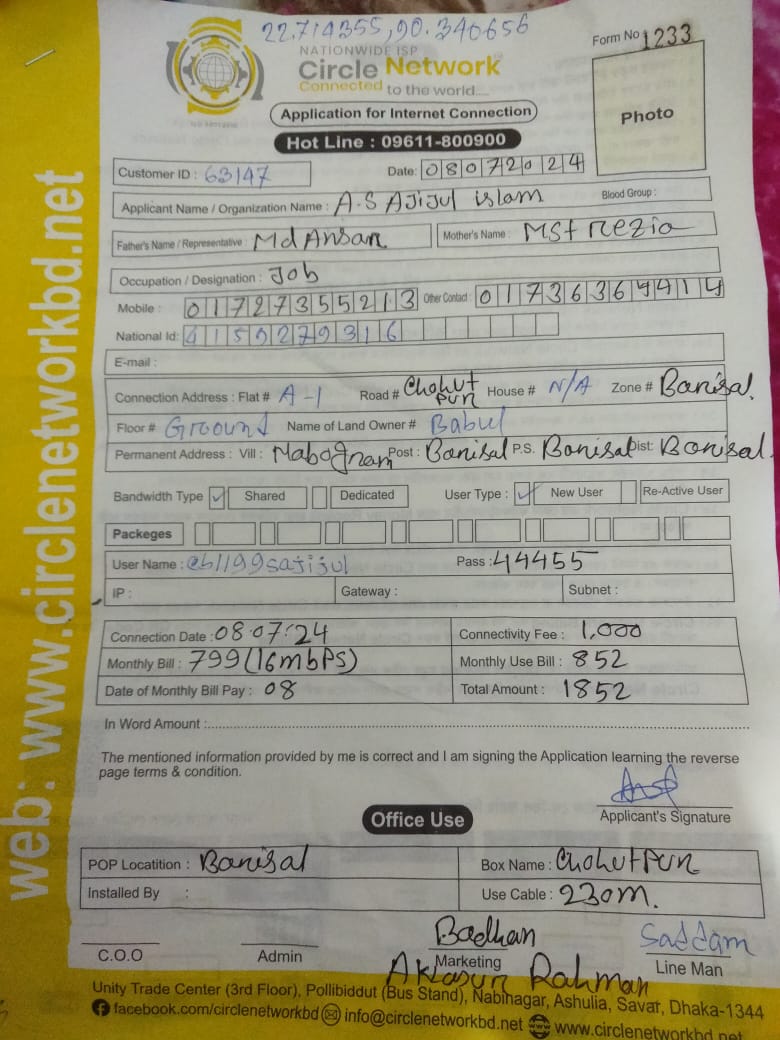 22.714355,90.340656
NATIONWIDE ISP
Circle Network
Connected to the world....
Form No 1233
Application for Internet Connection
Photo
Hot Line : 09611-800900
Customer ID : 63147 Date: 08072024
Applicant Name / Organization Name : A.S Ajijul islam Blood Group :
Father's Name / Representative : Md Ansar Mother's Name : MSt rezia
Occupation / Designation : Job
Mobile : 01727355213 Other Contact : 01736364414
National Id: 4159279316
E-mail :
Connection Address : Flat # A-1 Road # Chohutpur House # N/A Zone # Barisal.
Floor # Groound Name of Land Owner # Babul
Permanent Address : Vill : Nabogram Post : Barisal P.S. Barisal Dist: Barisal.
Bandwidth Type ✓ Shared Dedicated User Type : ✓ New User Re-Active User
Packeges
User Name : @b1199sajijul Pass : 44455
IP : Gateway : Subnet :
Connection Date : 08.07.24 Connectivity Fee : 1,000
Monthly Bill : 799 (16mbps) Monthly Use Bill : 852
Date of Monthly Bill Pay : 08 Total Amount : 1852
In Word Amount :
The mentioned information provided by me is correct and I am signing the Application learning the reverse
page terms & condition.
Applicant's Signature
Office Use
POP Locatition : Barisal Box Name : Chohutpur
Installed By : Use Cable : 230m.
Badhan Saddam
C.O.O Admin Marketing Line Man
Aklasur Rahman
Unity Trade Center (3rd Floor), Pollibiddut (Bus Stand), Nabinagar, Ashulia, Savar, Dhaka-1344
facebook.com/circlenetworkbd info@circlenetworkbd.net www.circlenetworkbd.net
web: www.circlenetworkbd.net